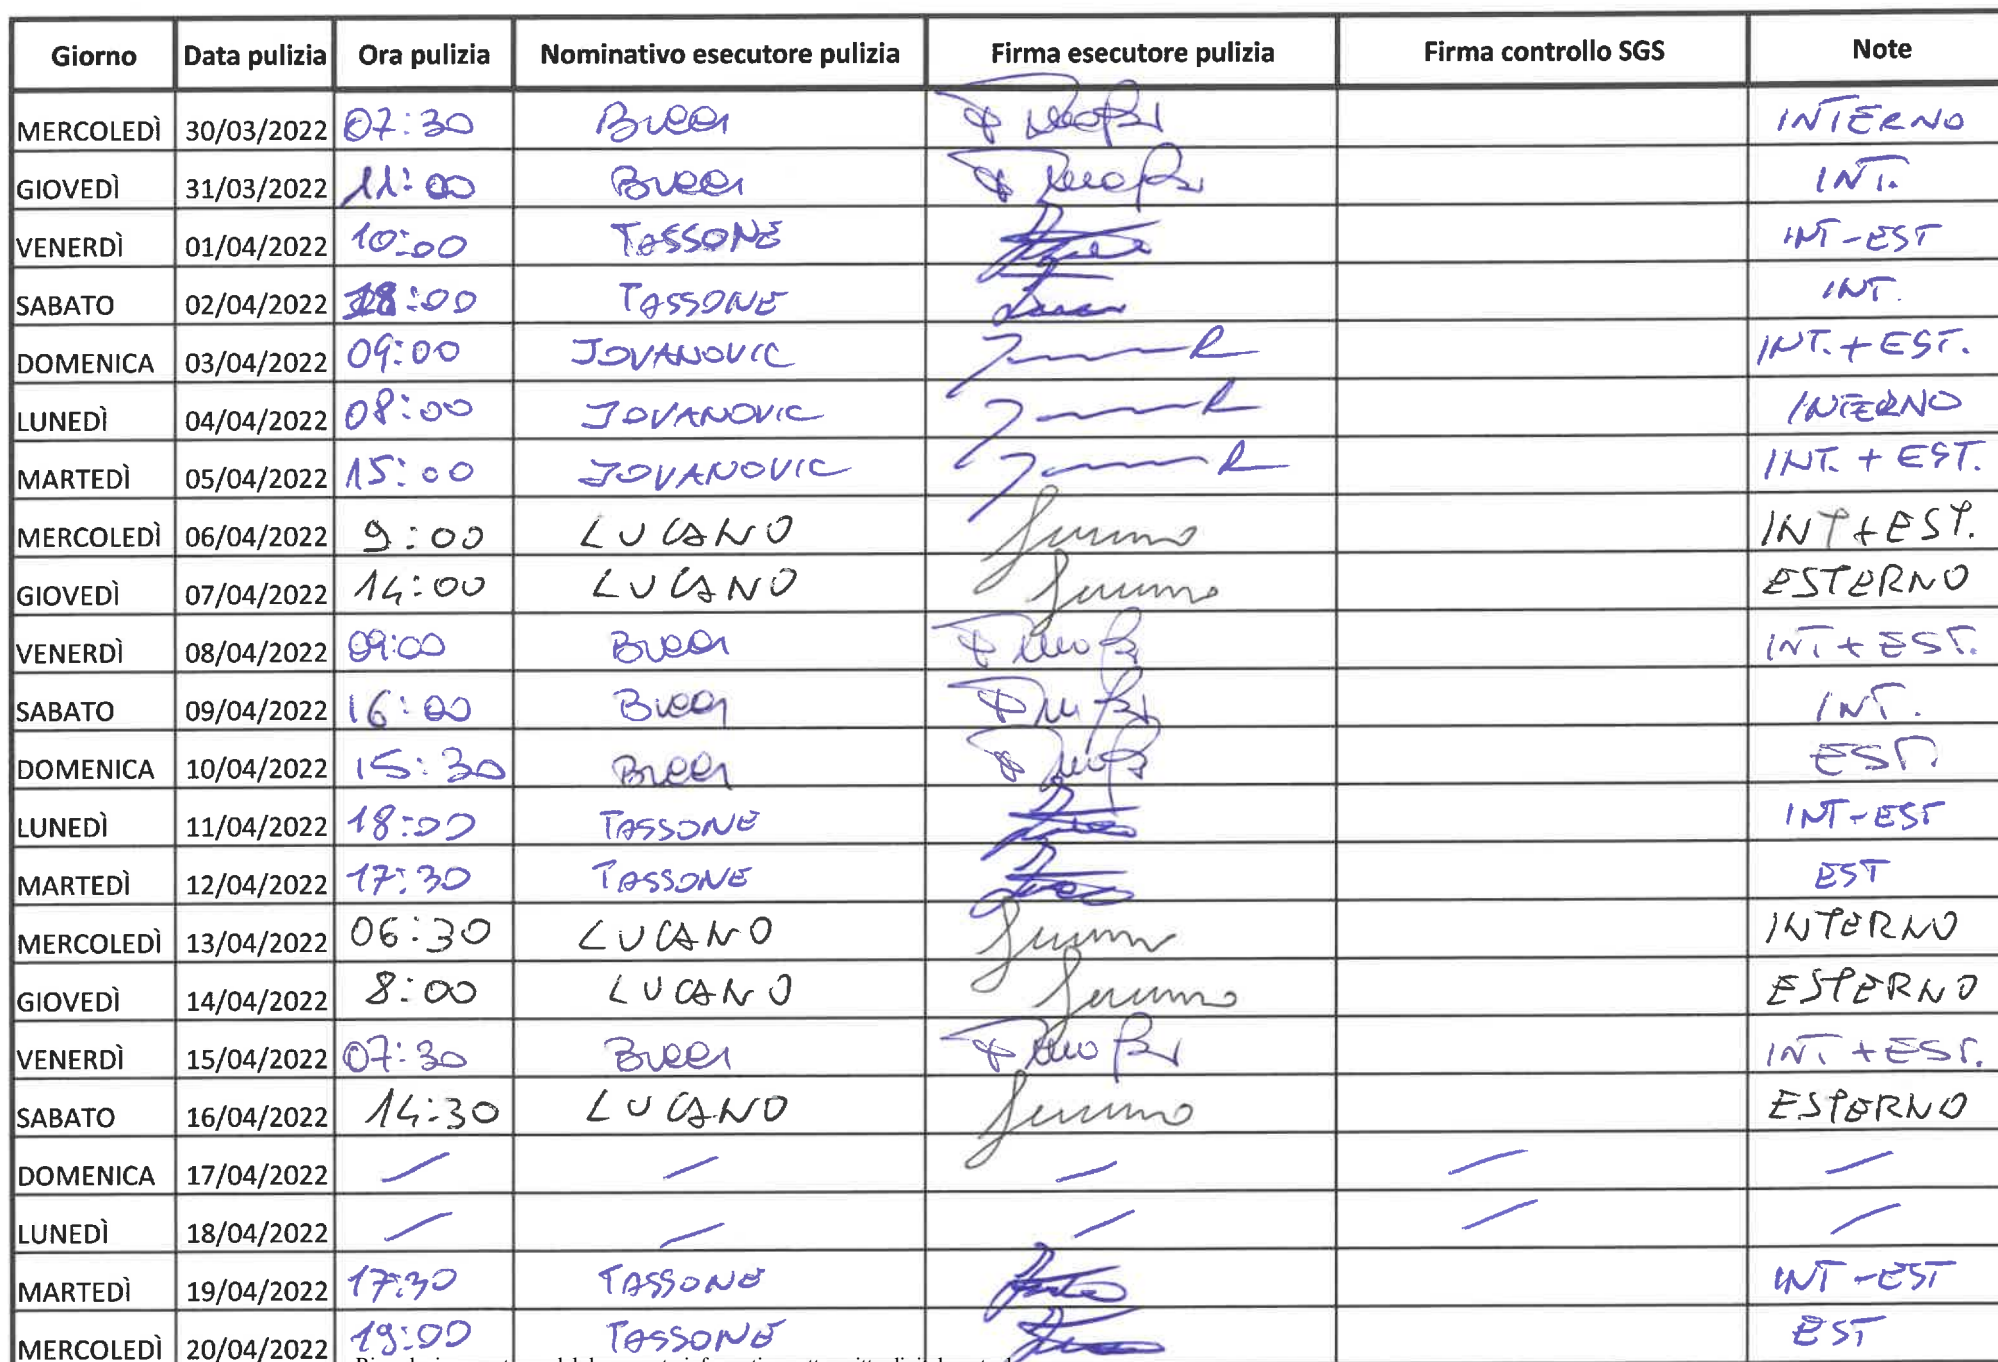 Giorno Data pulizia Ora pulizia Nominativo esecutore pulizia Firma esecutore pulizia Firma controllo SGS Note
MERCOLEDÌ 30/03/2022 07:30 Bucci INTERNO
GIOVEDÌ 31/03/2022 11:00 Bucci INT.
VENERDÌ 01/04/2022 10:00 TASSONE INT-EST
SABATO 02/04/2022 18:00 TASSONE INT.
DOMENICA 03/04/2022 09:00 JOVANOVIC INT.+EST.
LUNEDÌ 04/04/2022 08:00 JOVANOVIC INTERNO
MARTEDÌ 05/04/2022 15:00 JOVANOVIC INT. + EST.
MERCOLEDÌ 06/04/2022 9:00 LUCANO INT+EST.
GIOVEDÌ 07/04/2022 14:00 LUCANO ESTERNO
VENERDÌ 08/04/2022 09:00 Bucci INT+EST.
SABATO 09/04/2022 16:00 Bucci INT.
DOMENICA 10/04/2022 15:30 Bucci EST.
LUNEDÌ 11/04/2022 18:00 TASSONE INT-EST
MARTEDÌ 12/04/2022 17:30 TASSONE EST
MERCOLEDÌ 13/04/2022 06:30 LUCANO INTERNO
GIOVEDÌ 14/04/2022 8:00 LUCANO ESTERNO
VENERDÌ 15/04/2022 07:30 Bucci INT+EST.
SABATO 16/04/2022 14:30 LUCANO ESTERNO
DOMENICA 17/04/2022 / / / / /
LUNEDÌ 18/04/2022 / / / / /
MARTEDÌ 19/04/2022 17:30 TASSONE INT-EST
MERCOLEDÌ 20/04/2022 19:00 TASSONE EST